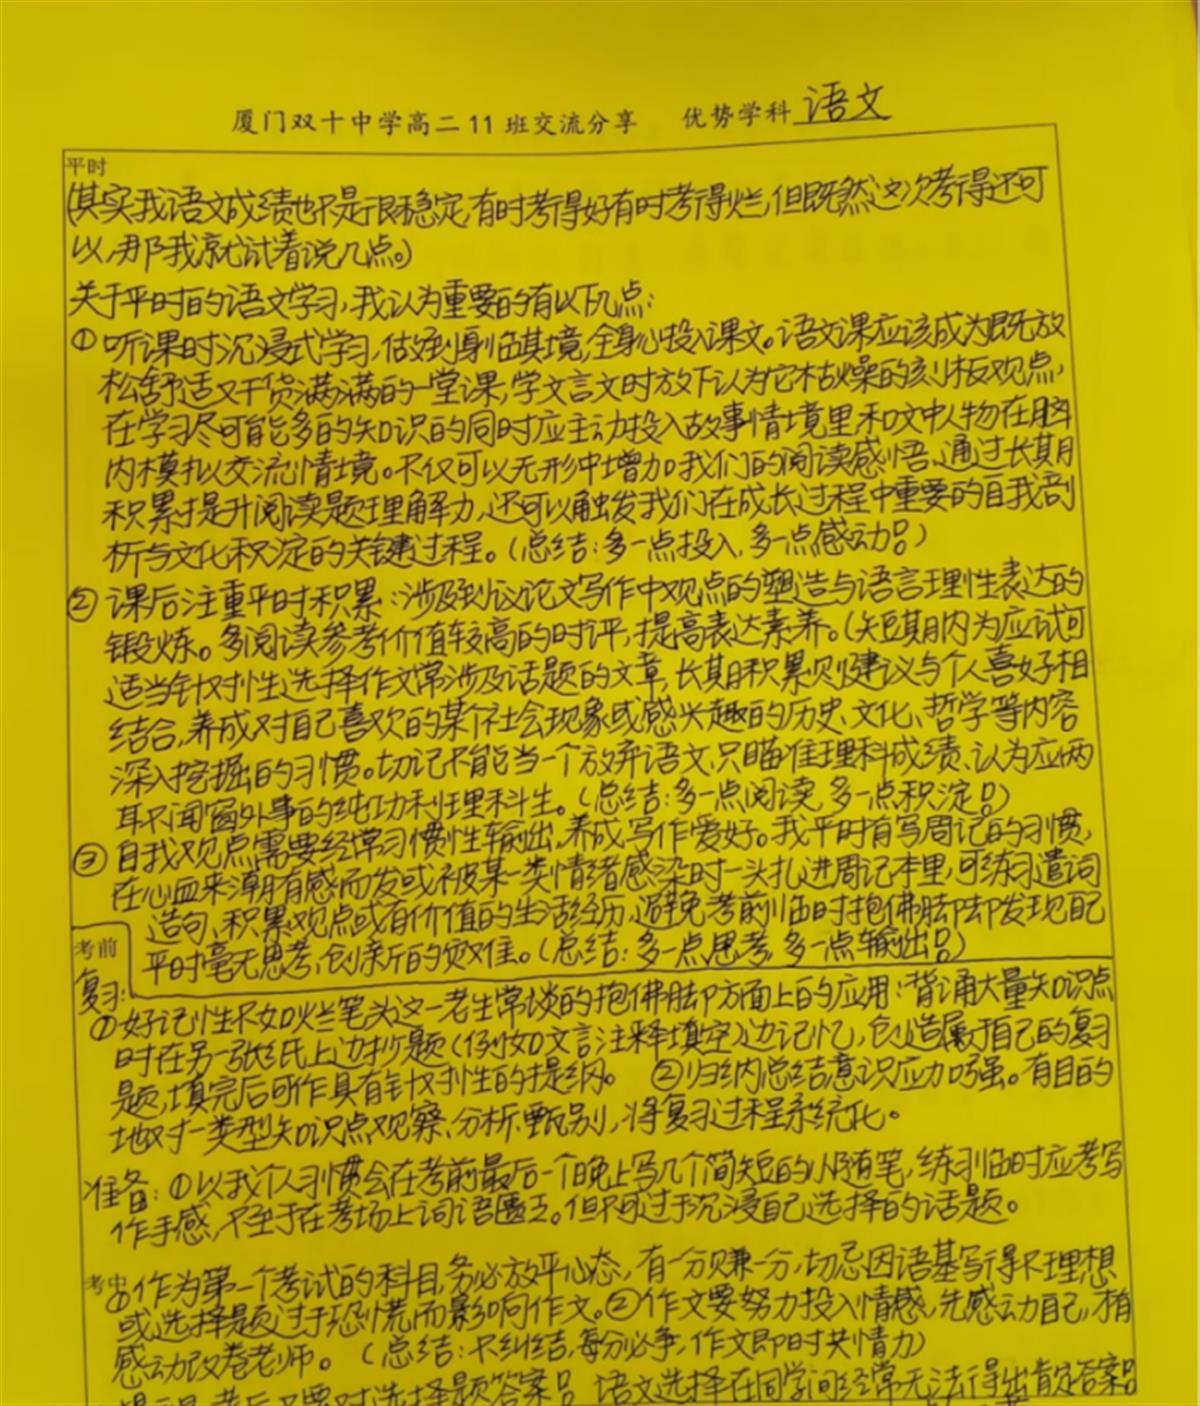 厦门双十中学高二11班交流分享 优势学科 语文
平时
(其实我语文成绩也不是很稳定,有时考得好有时考得烂,但既然这次考得还可
以,那我就试着说几点。)
关于平时的语文学习,我认为重要的有以下几点:
① 听课时沉浸式学习,做到身临其境,全身心投入课文。语文课应该成为既放
松舒适又干货满满的一堂课,学文言文时放下认为它枯燥的刻板观点,
在学习尽可能多的知识的同时应主动投入故事情境里和文中人物在脑
内模拟交流情境。不仅可以无形中增加我们的阅读感悟、通过长期
积累提升阅读题理解力,还可以触发我们在成长过程中重要的自我剖
析与文化积淀的关键过程。(总结:多一点投入,多一点感动!)
② 课后注重平时积累:涉及到议论文写作中观点的塑造与语言理性表达的
锻炼。多阅读参考价值较高的时评,提高表达素养。(短期内为应试可
适当针对性选择作文常涉及话题的文章,长期积累则建议与个人喜好相
结合,养成对自己喜欢的某个社会现象或感兴趣的历史、文化、哲学等内容
深入挖掘的习惯。切记不能当一个放弃语文、只瞄准理科成绩、认为应两
耳不闻窗外事的纯功利理科生。(总结:多一点阅读,多一点积淀!)
③ 自我观点需要经常习惯性输出,养成写作爱好。我平时有写周记的习惯,
在心血来潮有感而发或被某一类情绪感染时一头扎进周记本里,可练习遣词
造句、积累观点或有价值的生活经历,避免考前临时抱佛脚却发现自己
平时毫无思考、创新的灾难。(总结:多一点思考,多一点输出!)
考前
复习:
①好记性不如烂笔头这一老生常谈的抱佛脚方面上的应用:背诵大量知识点
时在另一张纸上边抄题(例如文言注释填空)边记忆,创造属于自己的复习
题,填完后可作具有针对性的提纲。 ②归纳总结意识应加强。有目的
地对一类型知识点观察、分析、甄别,将复习过程系统化。
准备:①以我个人习惯会在考前最后一个晚上写几个简短的小随笔,练习临时应考写
作手感,不至于在考场上词语匮乏。但不可过于沉浸自己选择的话题。
考中
①作为第一个考试的科目,务必放平心态,有一分赚一分,切忌因语基写得不理想
或选择题过于恐慌而影响作文。②作文要努力投入情感,先感动自己,才有
感动改卷老师。(总结:不纠结,每分必争,作文即时共情力)
考后不要对选择题答案! 语文选择在同学间经常无法得出肯定答案!